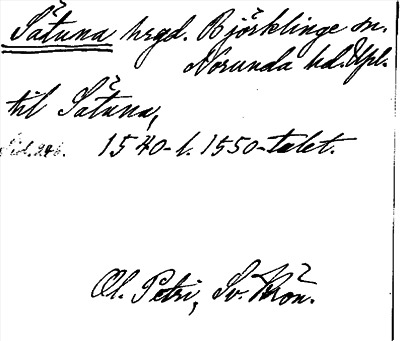 Sätuna hrgd. Björklinge sn.
Norunda hd. Upl.
til Sätuna,
1540- l. 1550-talet.
Ol. Petri, Sv. Krön.